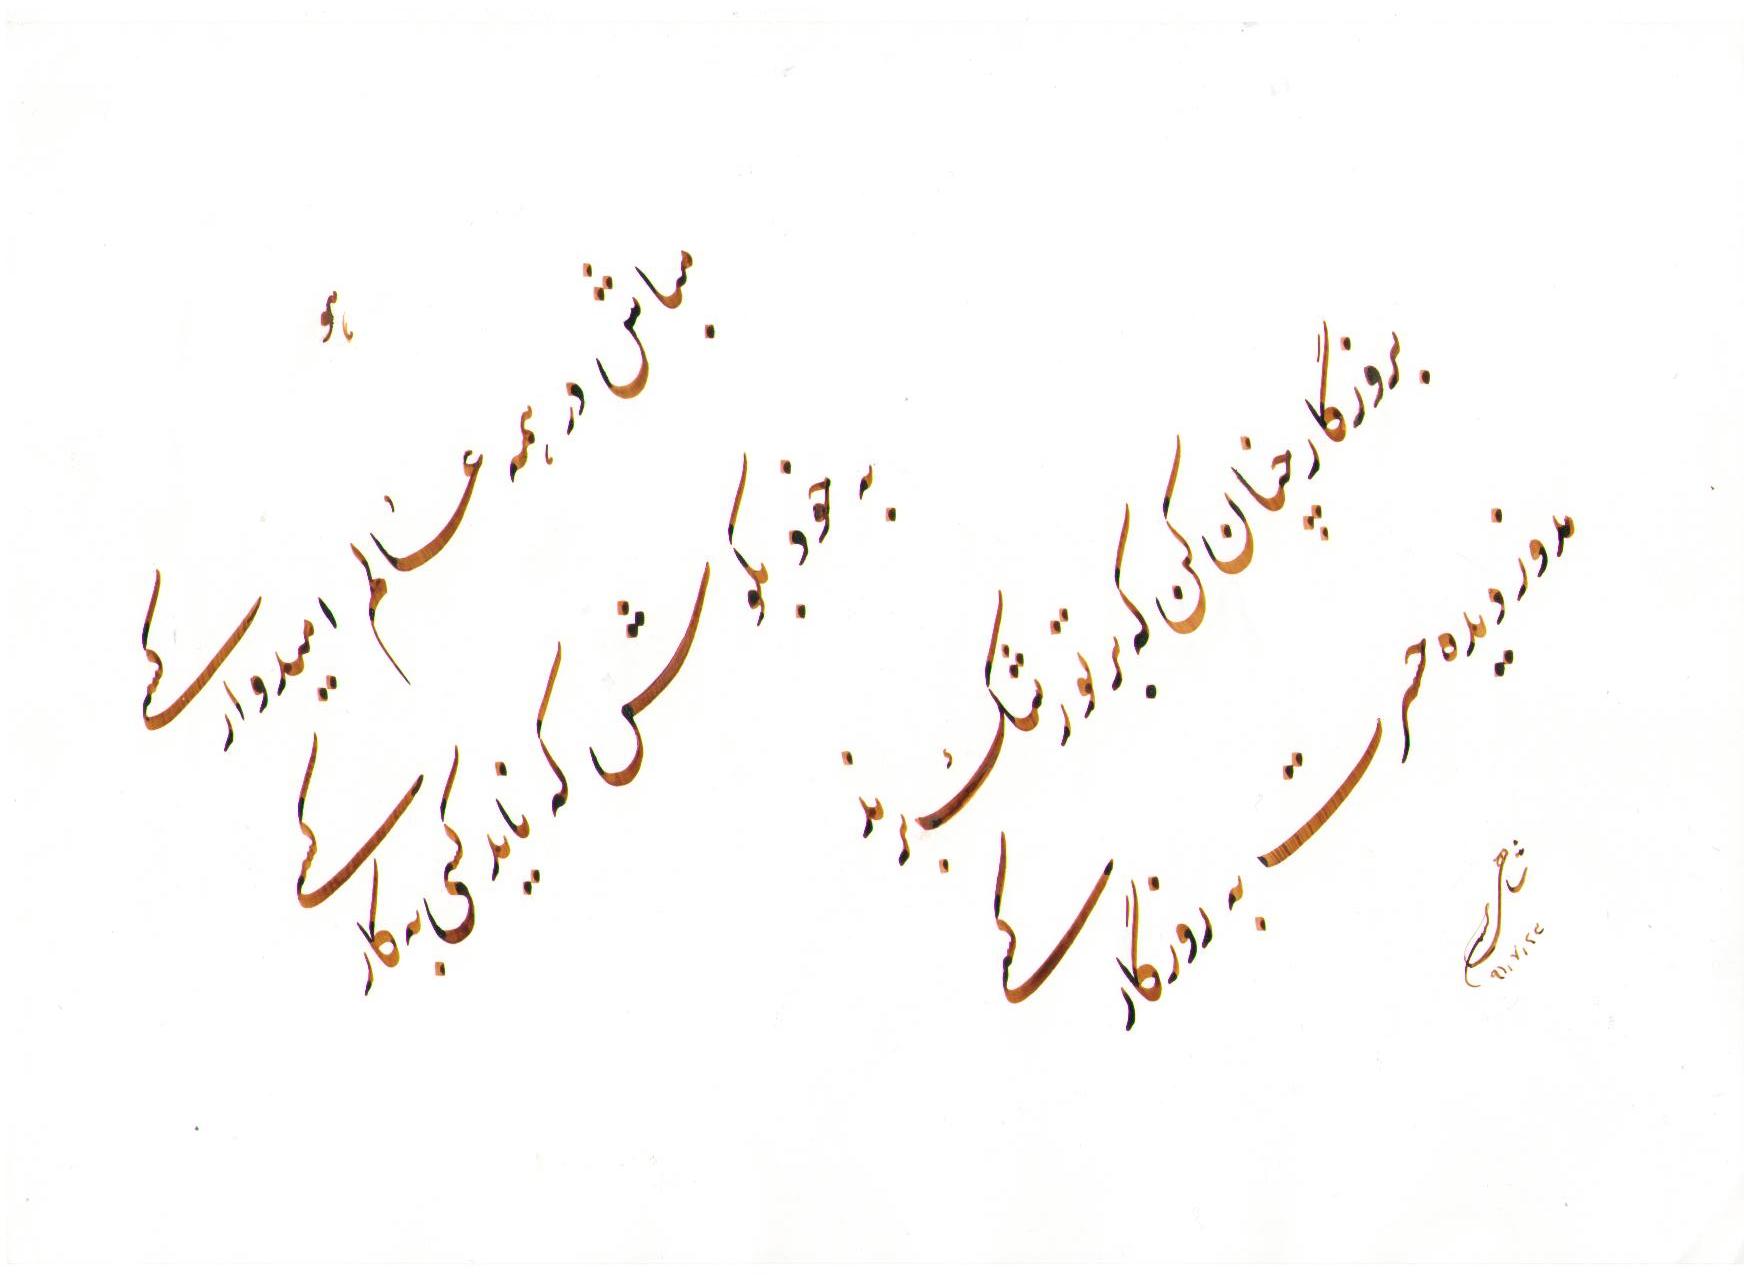 هو
مباش در همه عالم امیدوار کسی
به خود بکوش که ناید کسی به کار کسی
بروزگار چنان کن که بر تو رشک برند
مدوز دیده حسرت به روزگار کسی
۹۱٫۷٫۲۴